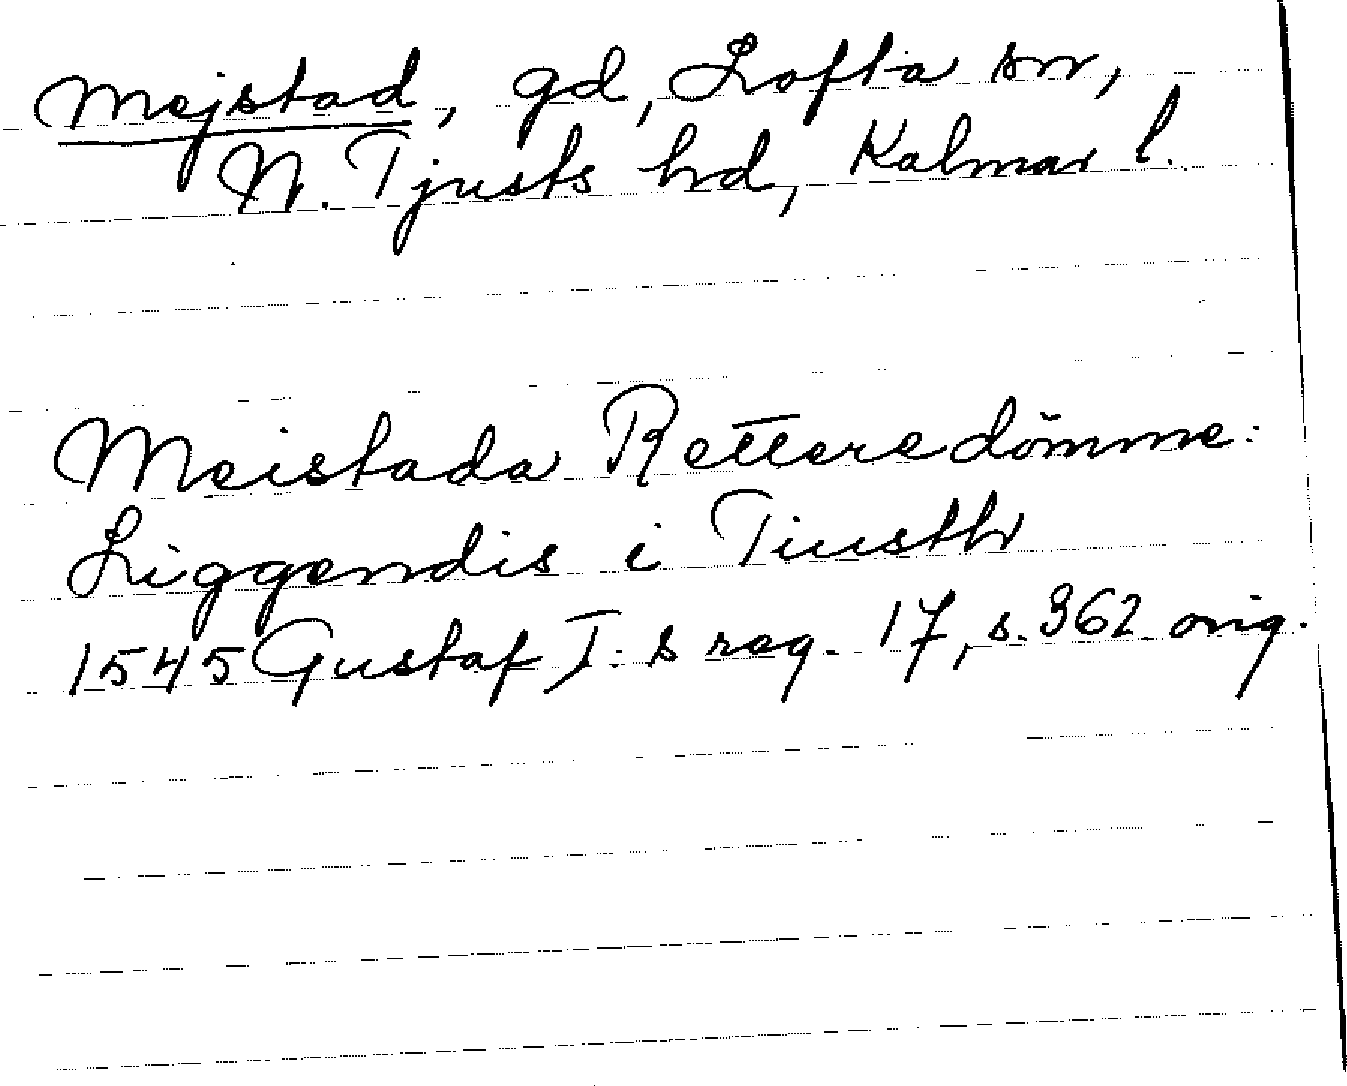 Mejstad, gd, Lofta sn,
N. Tjusts hd, Kalmar l.
Meistada Rettere dömme:
Liggendis i Tiusth
1545 Gustaf I:s reg. 17, s. 362 orig.